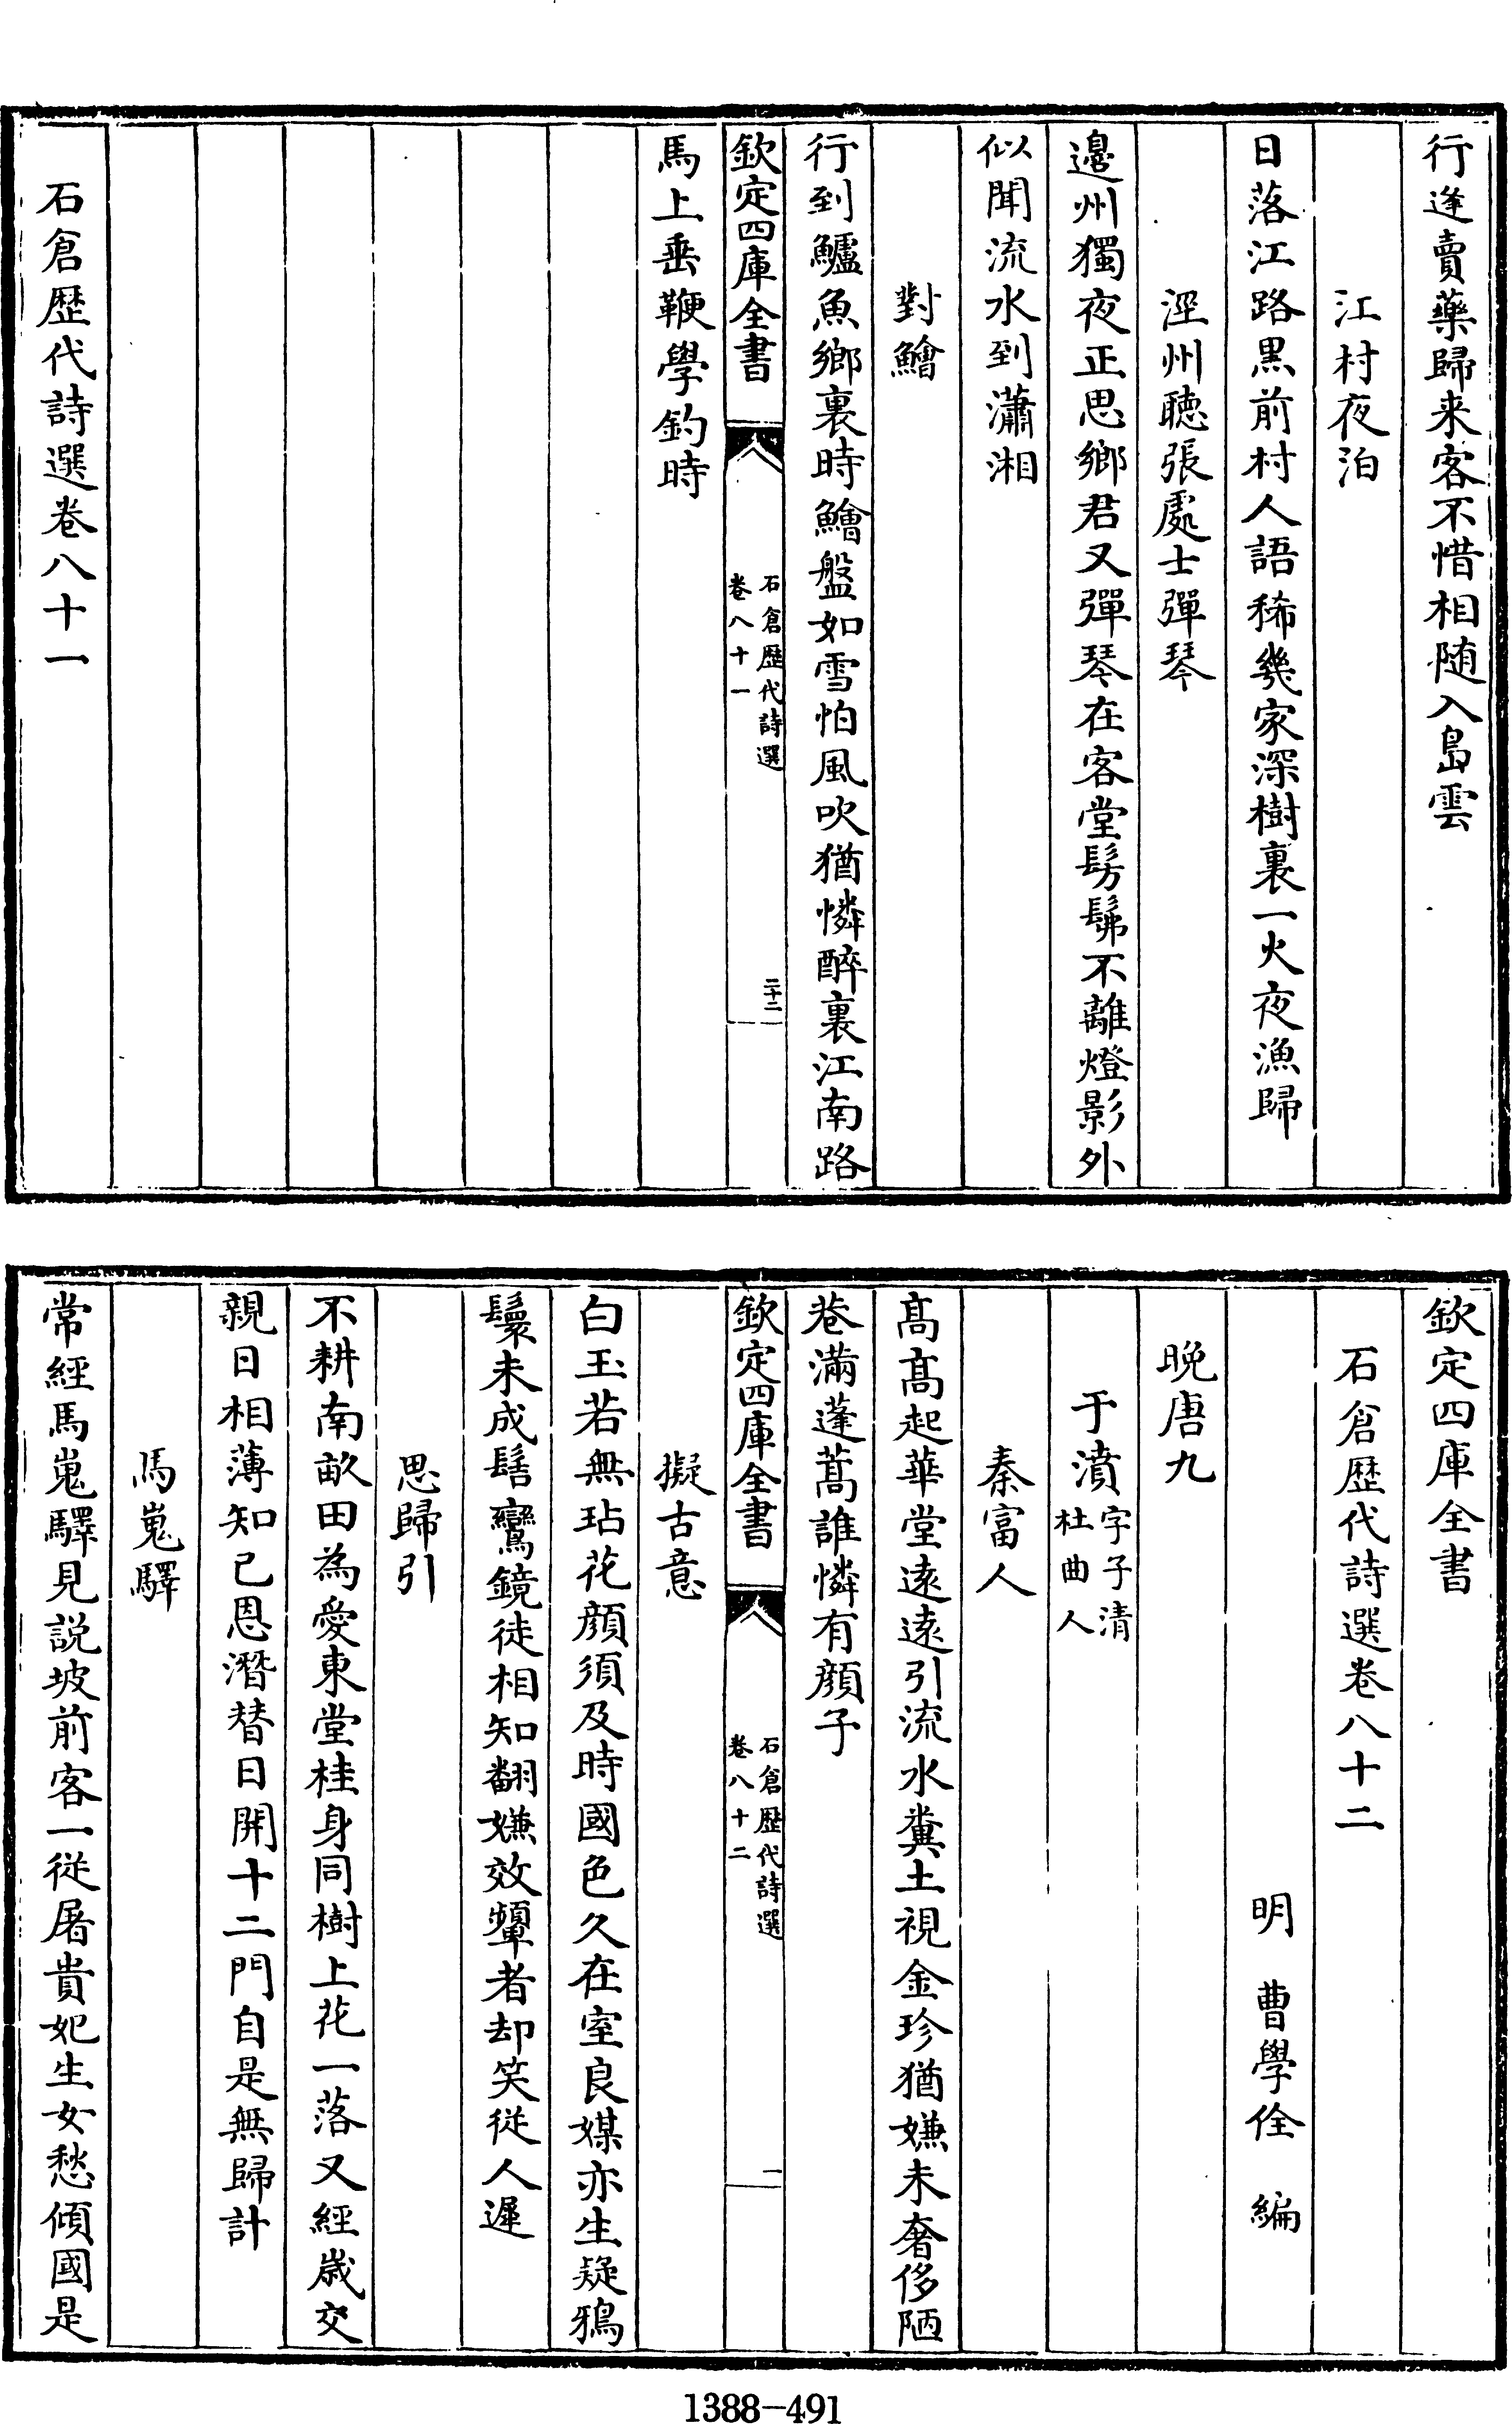 行逢賣藥歸来客不惜相随入島雲
江村夜泊
日落江路黒前村人語稀幾家深樹裏一火夜漁歸
涇州聴張處士彈琴
邉州獨夜正思鄉君又彈琴在客堂髣髴不離燈影外
似聞流水到瀟湘
對鱠
行到鱸魚鄉裏時鱠盤如雪怕風吹猶憐醉裏江南路
欽定四庫全書
石倉歴代詩選
卷八十一
二十二
馬上垂鞭學釣時
石倉歴代詩選卷八十一
欽定四庫全書
石倉歴代詩選卷八十二
明 曹學佺 編
晩唐九
于濆字子清
杜曲人
秦富人
髙髙起華堂逺逺引流水糞土視金珍猶嫌未奢侈陋
巷滿蓬蒿誰憐有顔子
欽定四庫全書
石倉歴代詩選
卷八十二
一
擬古意
白玉若無玷花顔須及時國色久在室良媒亦生疑鴉
鬟未成髻鸞鏡徒相知翻嫌效顰者却笑從人遲
思歸引
不耕南畝田為愛東堂桂身同樹上花一落又經歳交
親日相薄知已恩潛替日開十二門自是無歸計
馬嵬驛
常經馬嵬驛見説坡前客一從屠貴妃生女愁傾國是
1388-491